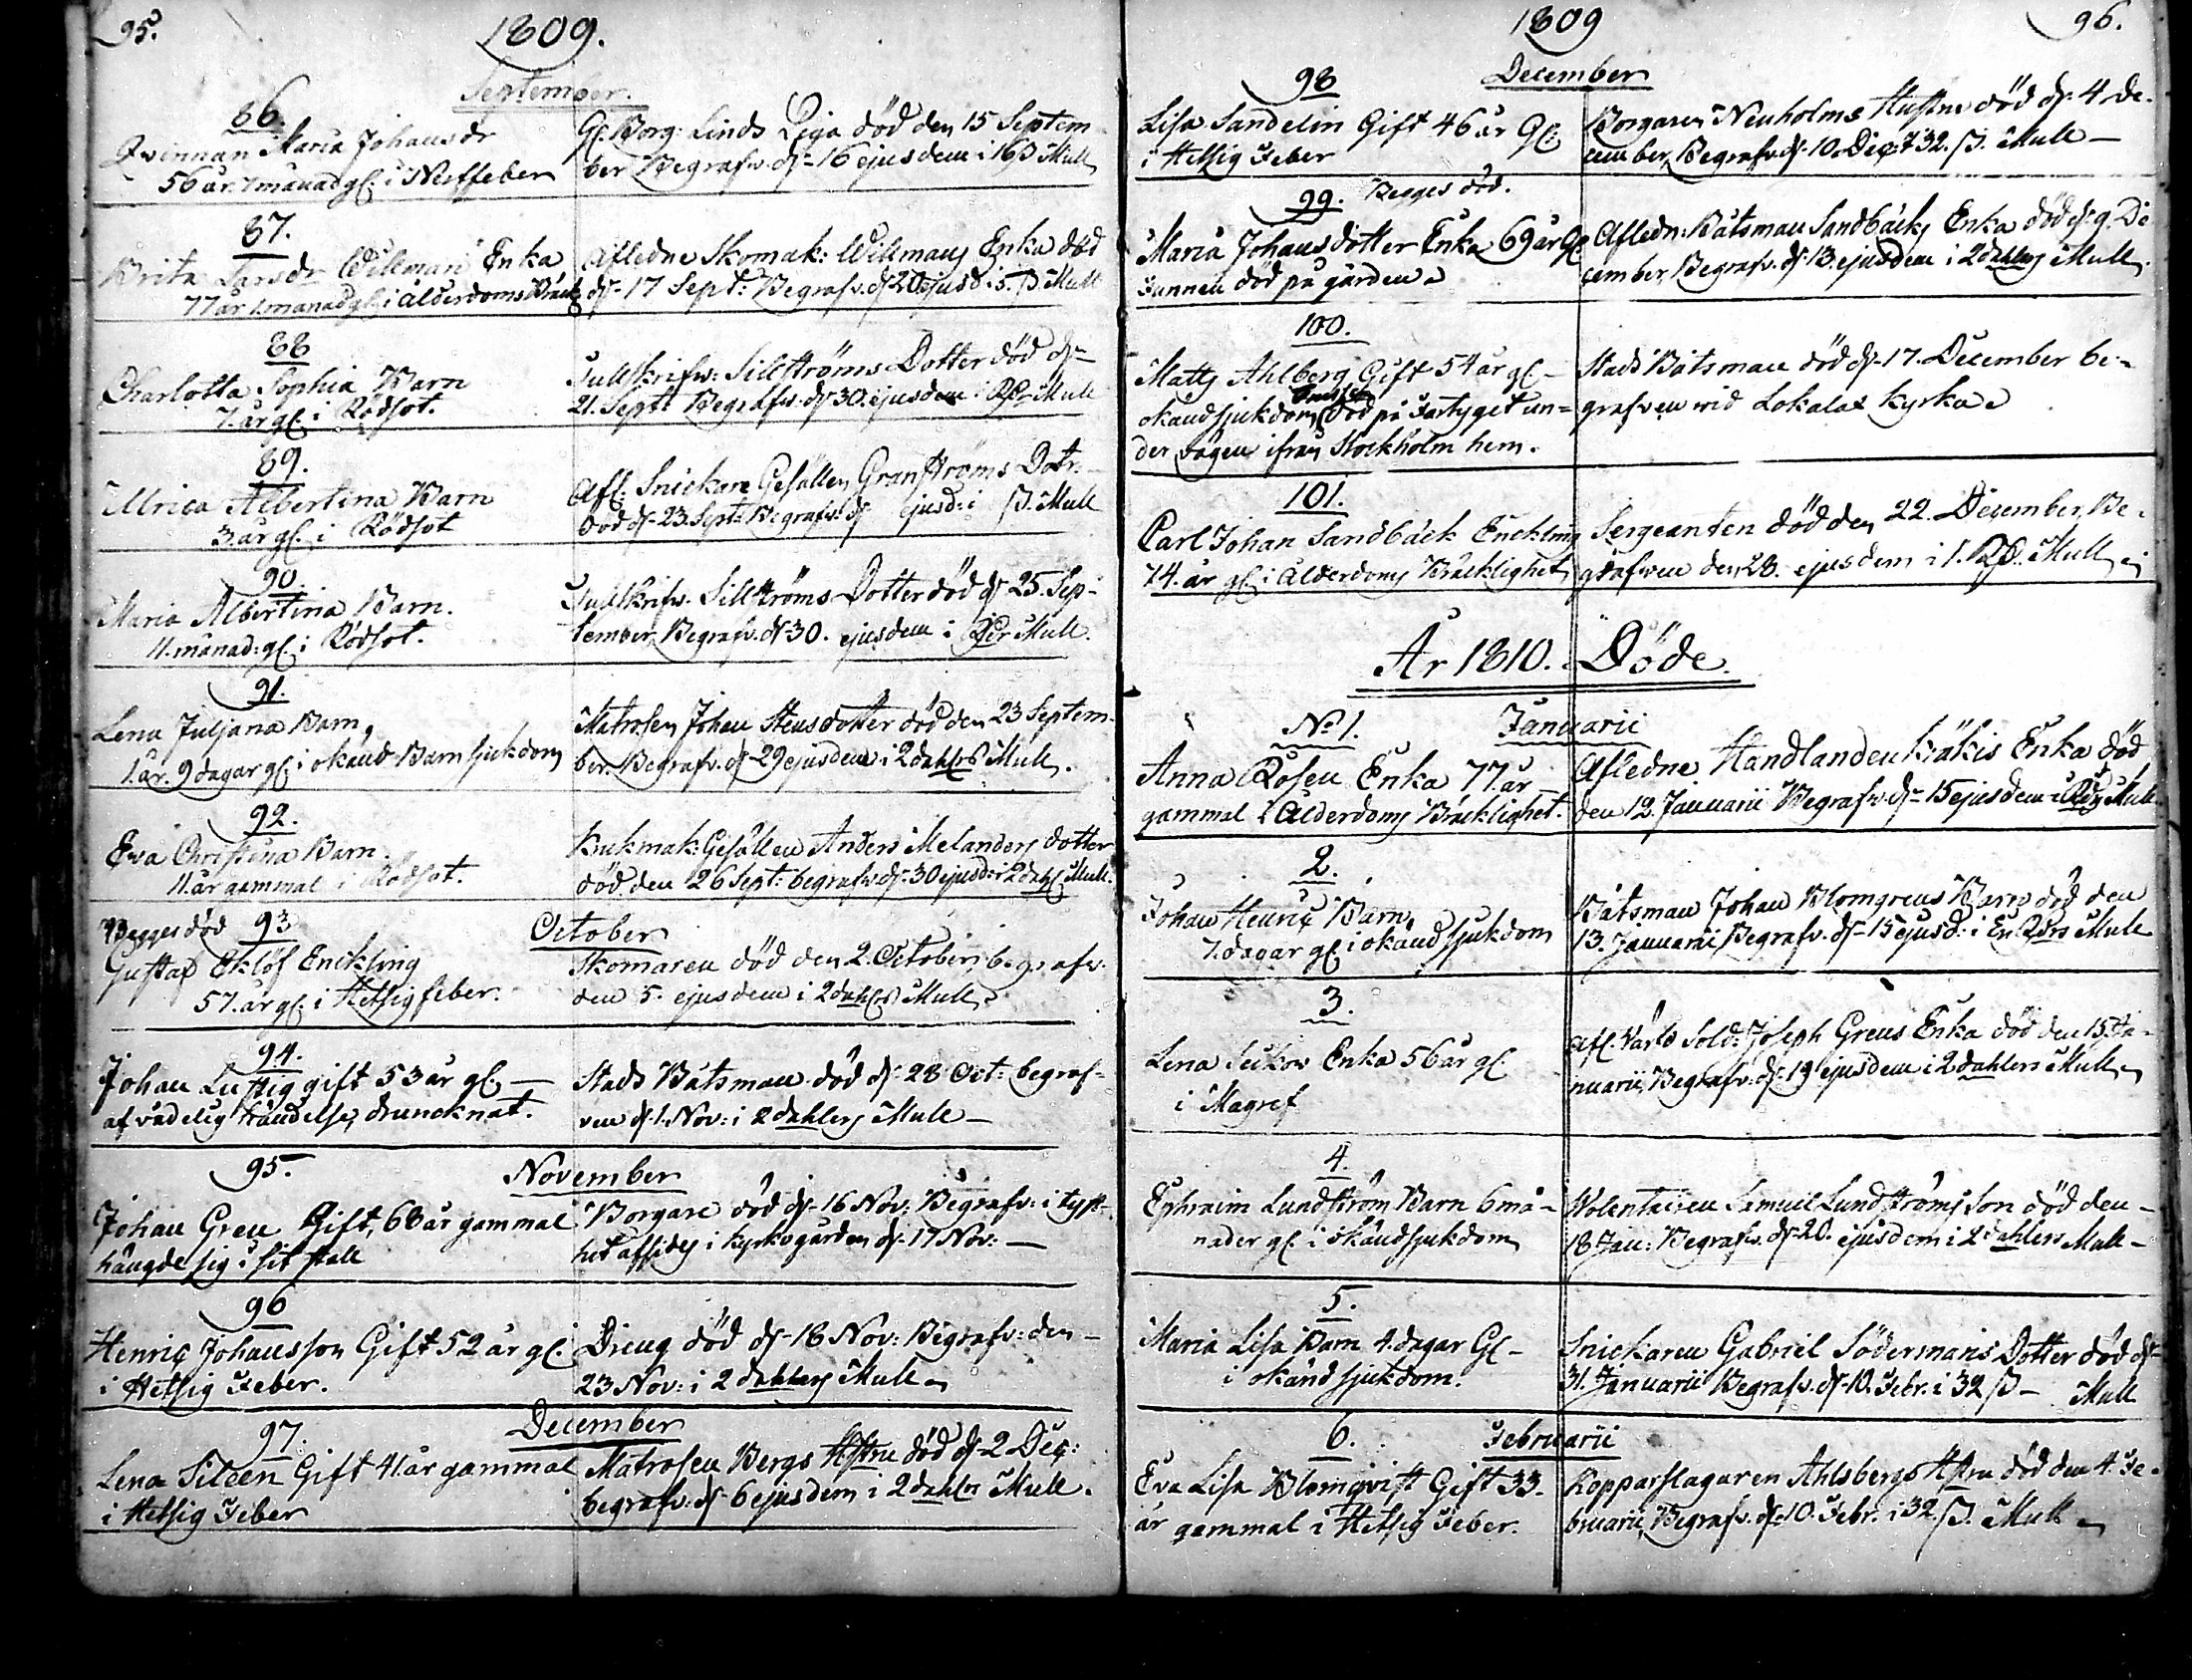 95.
1809.
September.
86.
Qvinnan Maria Johansdr
56 år 7 månad gl: i Nerffeber
Gl: Borg: Linds Piga död den 15 Septem
ber Begrafv. d: 16 ejusdem i 16 β Mull
87.
Brita Larsdr Willman Enka
77 år 1 månad gl: i ålderdoms Bräck
Afledne Skomak: Willmans Enka död
d: 17 Sept: Begrafv. d 20 ejusd: i 5. β Mull
88
Charlotta Sophia Barn
7. år gl. i Rödsot.
Tullskrifw: Sillströms Dotter död d:
21. Sept: Begrafv. d: 30. ejusdem i Mull
89.
Ulrica Albertina Barn
3. år gl. i Rödsot
Afl: Snickare Gesällen Granströms Dotr.
död d: 23. Sept: Begrafv: d: ejusd: i β. Mull
90.
Maria Albertina Barn.
11. månad: gl. i Rödsot.
Tullskrifw. Sillströms Dotter död d: 25. Sep-
tember, Begrafv. d: 30. ejusdem i Mull.
91.
Lena Juljana Barn,
1. år. 9 dagar gl: i okänd Barn sjukdom
Matrosen Johan Stens dotter död den 23 Septem-
ber. Begrafv. d: 29 ejusdem i 2 dahlrs Mull.
92.
Eva Christina Barn.
11. år gammal i Rödsot.
Krukmak: Gesällen Anders Melanders dotter
död den 26 Sept: begrafv: d: 30 ejusd: i 2 dahl: Mull.
Begges död 93
October
Gustaf Eklöf Enckling
57. år gl: i Hetsig feber.
Skomaren död den 2. Octobris, begrafv.
den 5. ejusdem i 2 dahlrs Mull.
94.
Johan Lustig gift 53 år gl. —
af vådelig händelse, druncknat.
Stads Båtsman död d: 28 Oct: begraf-
ven d: 1. Nov: i 2 dahlers Mull —
95.
November
Johan Gren Gift, 68 år gammal
hängde sig i sit stall
Borgare död d: 16 Nov: Begrafv: i tyst-
het afsides i kyrkogården d: 17 Nov: —
96
Henric Johansson Gift 52 år gl.
i Hetsig Feber.
Dreng död d: 18 Nov: Begrafv: den —
23 Nov: i 2 dahlers Mull
December
97.
Lena Sileen Gift 41. år gammal
i Hetsig Feber
Matrosen Bergs Hstru död d: 2 Dec:
begrafv: d: 6 ejusdem i 2 dahlrs Mull.
1809
96.
December
98
Lisa Sandelin Gift 46 år Gl:
i Hetsig Feber
Borgaren Neuholms Hustru död d: 4 De-
cember, Begrafv. d: 10. Dec: 32. β. Mull —
99. Begges död.
Maria Johansdotter Enka 69 år Gl
Funnen död på gården
Afledn: Båtsman Sandbäcks Enka död d: 9. De
cember, Begrafv. d: 13. ejusdem i 2 dahlers Mull.
100.
Matts Ahlberg Gift 54 år gl. —
okänd sjukdom, död på Fartyget un=
der vägen ifrån Stockholm hem.
Stads Båtsman död d: 17. December be-
grafven wid Lokalax kyrka
101.
Carl Johan Sandbäck Enckling
74. år gl. i Ålderdoms Bräcklighet
Sergeanten död den 22. December, Be-
grafven den 28. ejusdem i 1. Mull
År 1810. Döde.
Januarii
No 1.
Anna Rosen Enka 77. år
gammal i Ålderdoms Bräcklighet.
Afledne Handlanden Kräkis Enka död
den 12. Januarii Begrafv. d: 15 ejusdem i Mull.
2.
Johan Henric Barn,
7. dagar gl. i okänd sjukdom
Båtsman Johan Blomgrens Barn död den
13. Januarii, Begrafv. d: 15 ejusd: i En Mull
3.
Lena Enka 56 år gl
i Magref
Afl. Värfd Sold: Joseph Grens Enka död den 15. Ja-
nuarii, Begrafv: d: 19 ejusdem i 2 dahlers Mull
4.
Ephraim Lundström Barn 6 må-
nader gl: i okänd sjukdom
Wolentairen Samuel Lundströms Son död den —
18 Jan: Begrafv. d: 20. ejusdem i 2 dahlers Mull —
5.
Maria Lisa Barn 4. dagar Gl —
i okänd sjukdom.
Snickaren Gabriel Södermans Dotter död d:
31. Januarii Begrafv. d: 10. Febr. i 32 β — Mull
6.
Februarii
Eva Lisa Blomqvist Gift 33.
år gammal i Hetsig Feber.
Kopparslagaren Ahlsbergs Hstru död den 4. Fe-
bruarii, Begrafv. d: 10. Febr. i 32. β. Mull